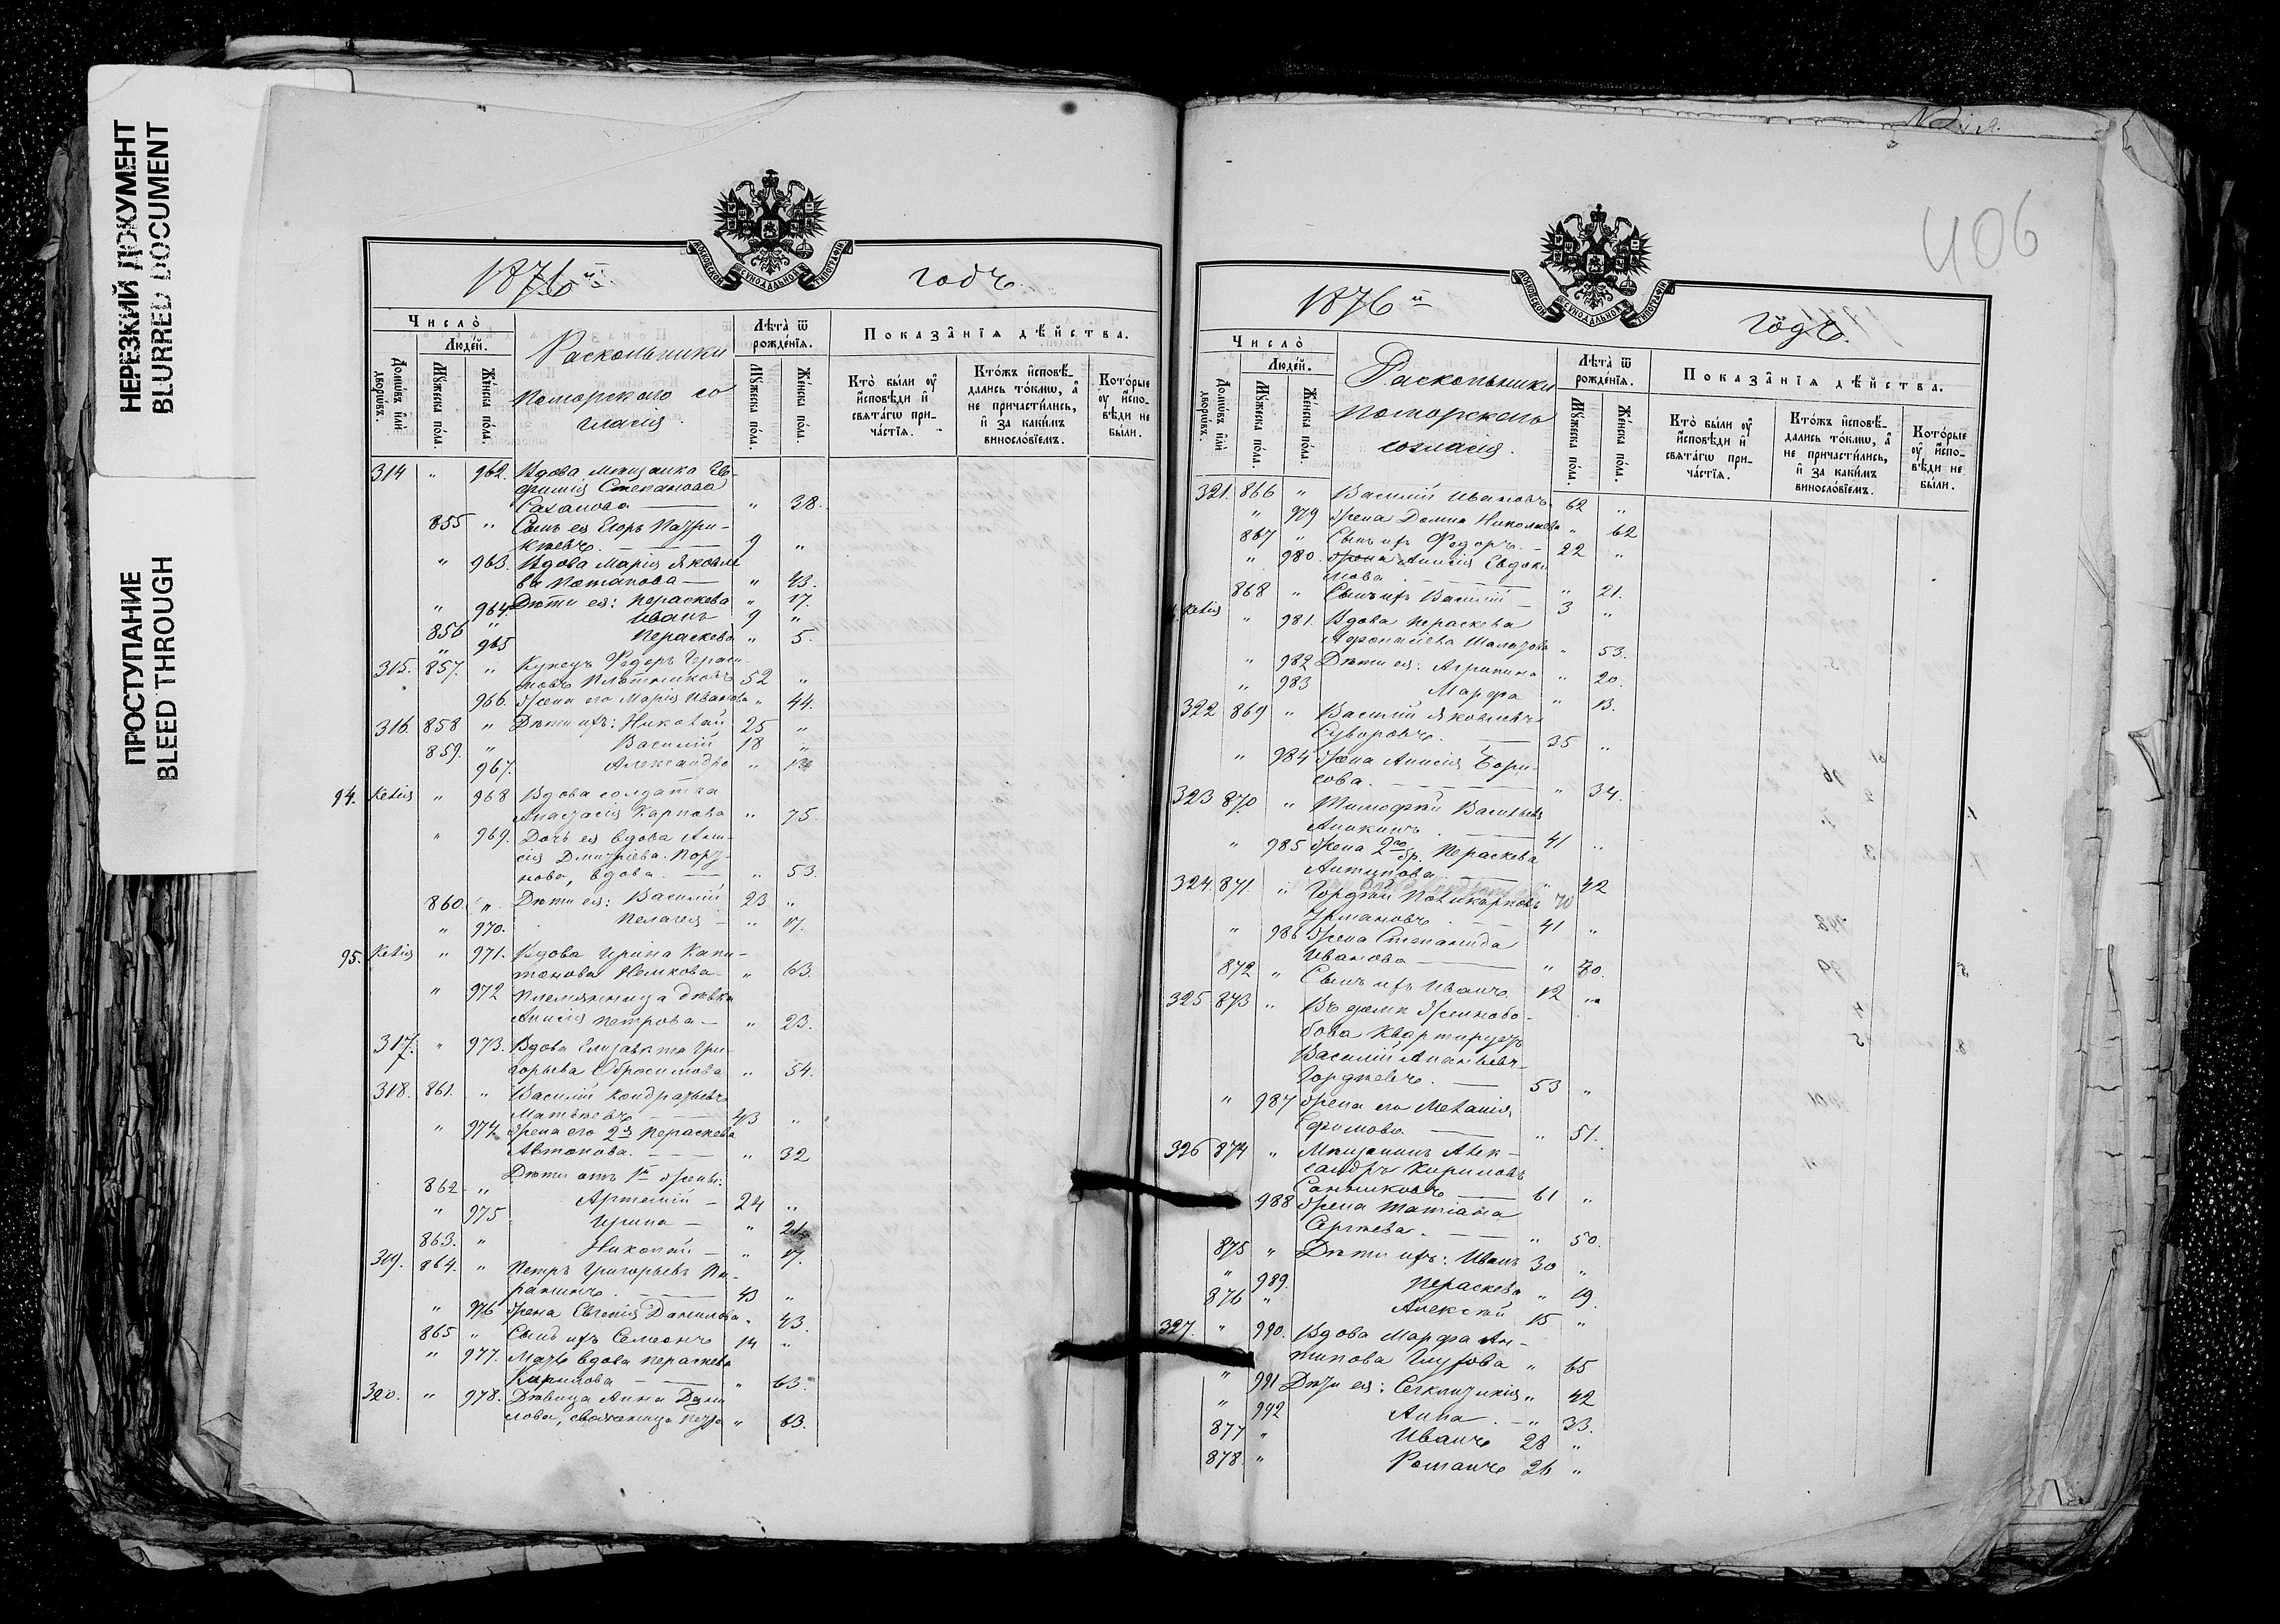 НЕРЕЗКИЙ ДОКУМЕНТ
BLURRED DOCUMENT
ПРОСТУПАНИЕ
BLEED THROUGH
МОСКОВСКОЙ СѴНОДАЛЬНОЙ ТИПОГРАФІИ
1876 й годъ.
Число̀
Людей.
Домѡ́въ и҆лѝ дворѡ́въ.
Мꙋ́жеска по́ла.
Же́нска по́ла.
Раскольники
Поморскаго со
гласія.
Лѣ́та ѿ рожде́нїѧ.
Мꙋ́жеска по́ла.
Же́нска по́ла.
Показа̑нїѧ дѣ́йства.
Кто̀ бы́ли оу҆ и҆сповѣди и҆ свѧта́гѡ при-ча́стїѧ.
Кто́жъ и҆сповѣ́-дались то́кмѡ, а҆ не причасти́лись, и҆ за каки́мъ винослові́емъ.
Кото́рые оу҆ и҆спо-вѣди не бы́ли.
314 " 962. Вдова мѣщанка Ев-
фимія Степанова
Саханова — " 38.
855 " Сынъ ея Егоръ Патри-
кѣевъ. — 9 "
" 963. Вдова Марія Яковле
ва Потапова — " 43.
" 964 Дѣти ея: Пераскева " 17.
856 " Иванъ 9 "
" 965 Пераскева " 5.
315. 857. " Купецъ Федоръ Гераси-
мовъ Плотниковъ 52 "
966. Жена его Марія Иванова " 44.
316. 858 " Дѣти ихъ: Николай 25 "
859. " Василій 18 "
967. Александра "
94. Келія " 968 Вдова солдатка
Анастасія Карпова " 75.
" 969. Дочь ея вдова Ани-
сія Дмитріева
вдова. — " 53.
860. " Дѣти ея: Василій 23 "
" 970. Пелагея — " 17.
95. Келія " 971. Вдова Ирина Капи-
тонова — " 63.
" 972 Племянница дѣвка
Анисія Петрова — " 23.
317. " 973. Вдова Елизавѣта Гри-
горьева Обросимова " 54.
318. 861. " Василій Кондратьевъ
Матвѣевъ — 43 "
" 974 Жена его 2я Пераскева
Автонова. — " 32
Дѣти отъ 1й жены:
862. " Артемій — 24 "
" 975 Ирина — "
863. " Николай — " 17.
319. 864. " Петръ Григорьевъ
43 "
" 976 Жена Евгенія Данилова " 43.
865 " Сынъ ихъ Семеонъ 14 "
" 977. Мать вдова Пераскева
Кирилова — " 63.
320. " 978. Дѣвица Анна Дани
лова, " 63.
406
1876 й годъ.
Число̀
Людей.
Домѡ́въ и҆лѝ дворѡ́въ.
Мꙋ́жеска по́ла.
Же́нска по́ла.
Раскольники
поморскаго
согласія.
Лѣ́та ѿ рожде́нїѧ.
Мꙋ́жеска по́ла.
Же́нска по́ла.
Показа̑нїѧ дѣ́йства.
Кто̀ бы́ли оу҆ и҆сповѣди и҆ свѧта́гѡ при-ча́стїѧ.
Кто́жъ и҆сповѣ́-дались то́кмѡ, а҆ не причасти́лись, и҆ за каки́мъ винослові́емъ.
Кото́рые оу҆ и҆спо-вѣди не бы́ли.
321. 866 " Василій Ивановъ 62 "
" 979 Жена Домна Николаева " 62
867 " Сынъ ихъ Федоръ. — 22 "
" 980. Жена Анисія Евдоки
мова — " 21.
868 " Сынъ ихъ Василій — 3 "
Келія " 981. Вдова Пераскева
" 53.
" 982 Дѣти ея: Агрипина " 20.
" 983 Марфа " 13.
322 869 " Василій Яковлевъ
Суворовъ. — 35 "
" 984 Жена Анисія Бори-
сова. — " 34.
323 870. " Тимофей Васильевъ
Аникинъ — 41 "
" 985 Жена 2го бр. Пераскева
Антипова. — " 42
324. 871. " Гордѣй Поликарповъ
— 41 "
" 986 Жена Степанида
Иванова — " 40.
872 " Сынъ ихъ Иванъ 12 "
325 873 " Въ домѣ
квартируетъ
Василій Ананьевъ
Гордѣевъ. — 53 "
" 987 Жена его Меланія
Ефимова — " 51.
326 874 " Мѣщанинъ Алек-
сандръ Кириловъ
Санниковъ — 61 "
988 Жена Татіана
Сергѣева. — " 50.
875 " Дѣти ихъ: Иванъ 30 "
" 989. Пераскева " 19.
876 " Алексѣй 15 "
327. " 990. Вдова Марфа Ан-
типова " 65
" 991 Дѣти ея: " 42
" 992 Анна. — " 33.
877 " Иванъ 28 "
878 " Романъ 26 "